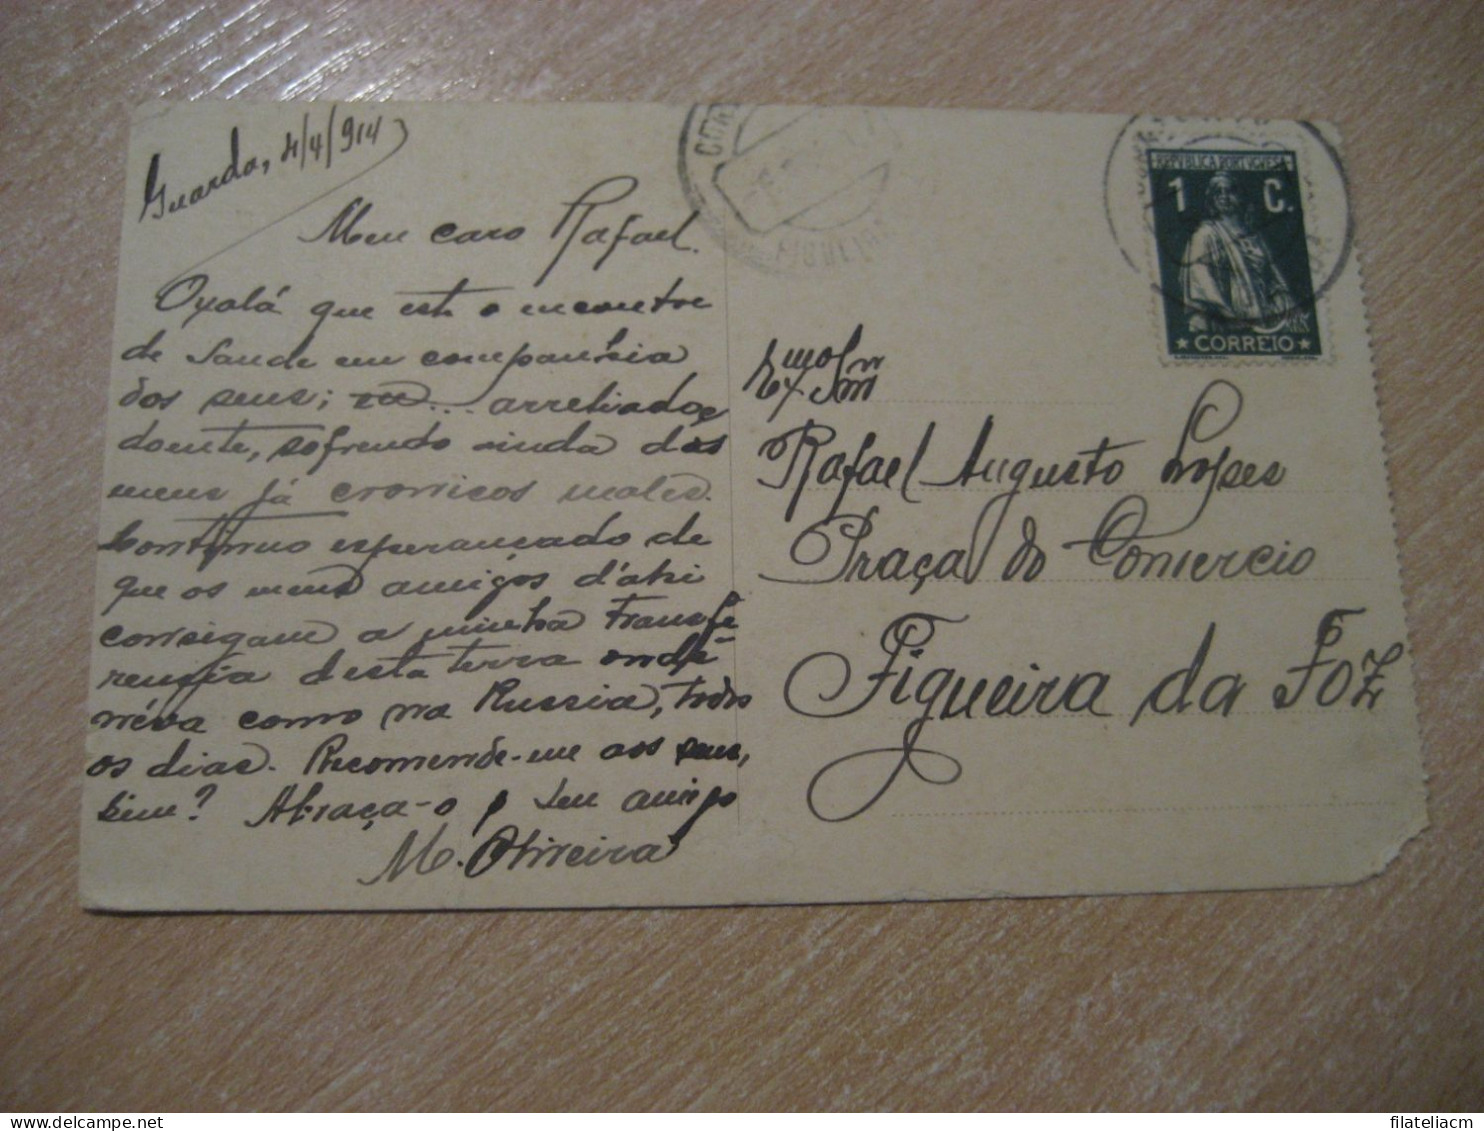 Guarda, 4/4/914
Meu caro Rafael.
Oxalá que este o encontre
de saude em companhia
dos seus; eu... arreliado e
doente, sofrendo ainda dos
meus já cronicos males.
Continuo esperançado de
que os meus amigos d'ahi
consigam a minha transfe-
rencia desta terra onde
néva como na Russia, todos
os dias. Recomende-me aos seus,
sim? Abraça-o o seu amigo
M. Oliveira
CORR
FIGUEIRA
REPUBLICA PORTUGUESA
1 C.
CORREIO
Exmo Snr
Rafael Augusto Lopes
Praça do Comercio
Figueira da Foz
filateliacm